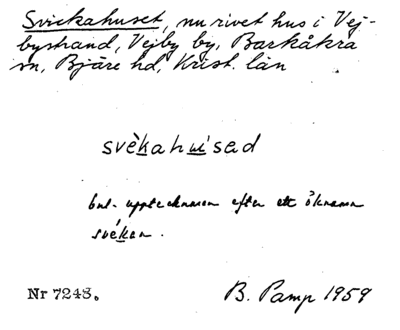 Svickahuset, nu rivet hus i Vej-
bystrand, Vejby by, Barkåkra
sn, Bjäre hd, Krist. län
svèkahu̇sad
enl. upptecknaren efter ett öknamn
svékan.
Nr 7248. B. Pamp 1959